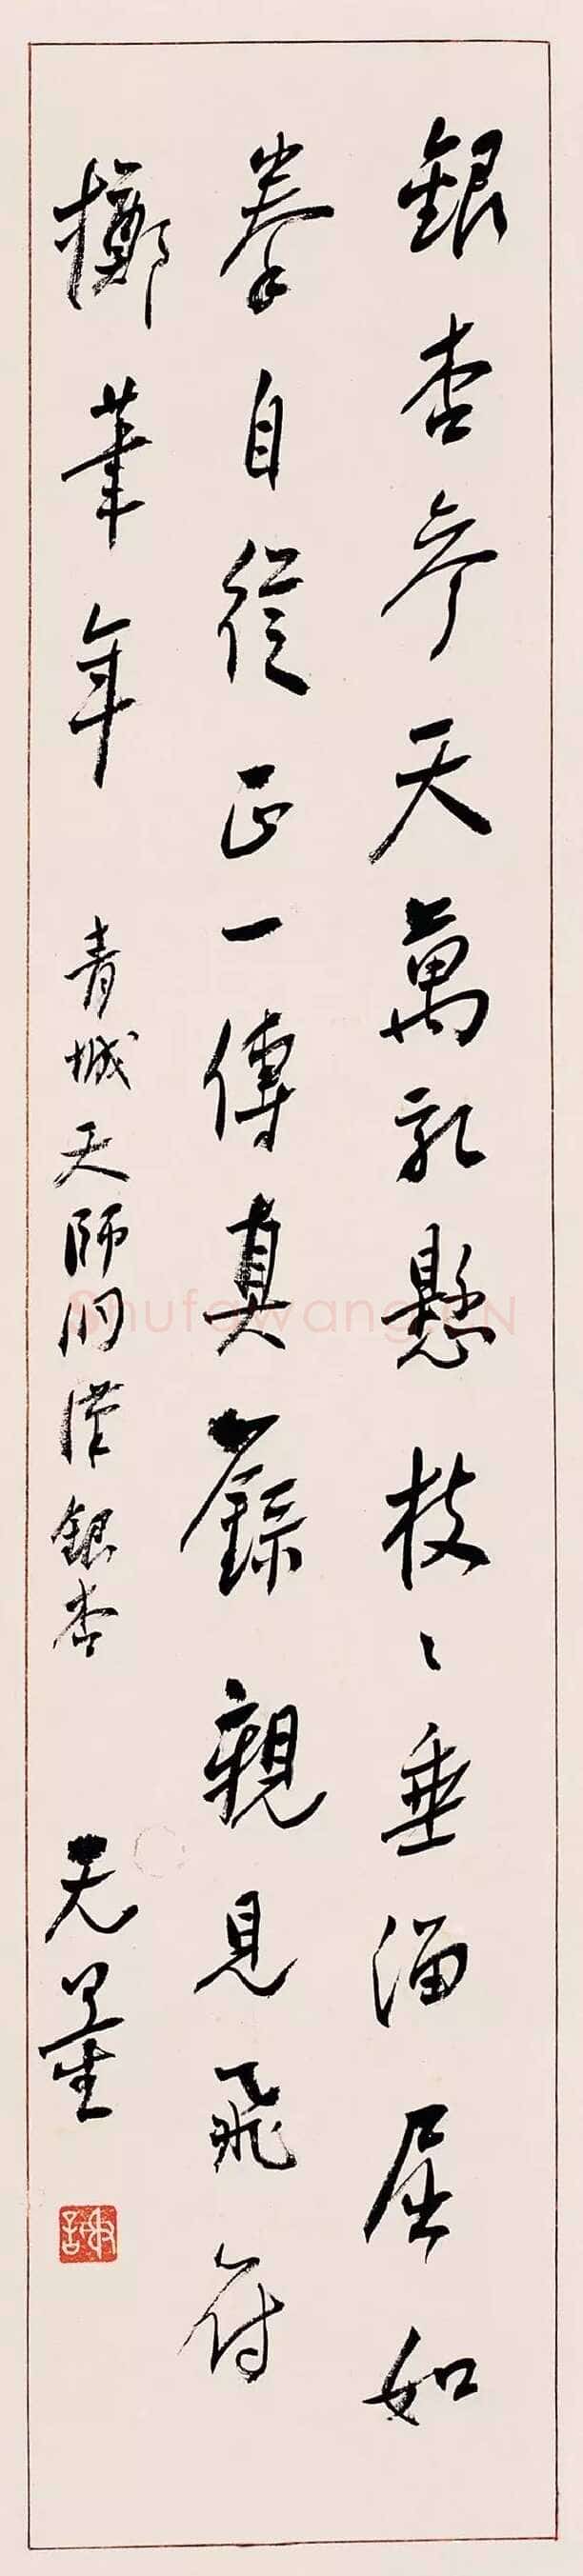 銀杏參天萬乳懸枝〻垂溜屈如
拳自從正一傳真籙親見飛符
擲筆年 青城天師洞漢銀杏 无量
謝
Shufawang.CN